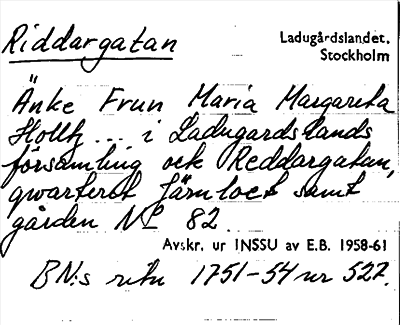 Riddargatan
Ladugårdslandet,
Stockholm
Änke Frun Maria Margareta
Holltz ... i Ladugardslands
församling ock Reddargatan,
qwarteret Järnloet samt
gården No 82
Avskr. ur INSSU av E.B. 1958-61
BN:s ritn 1751-54 nr 527.